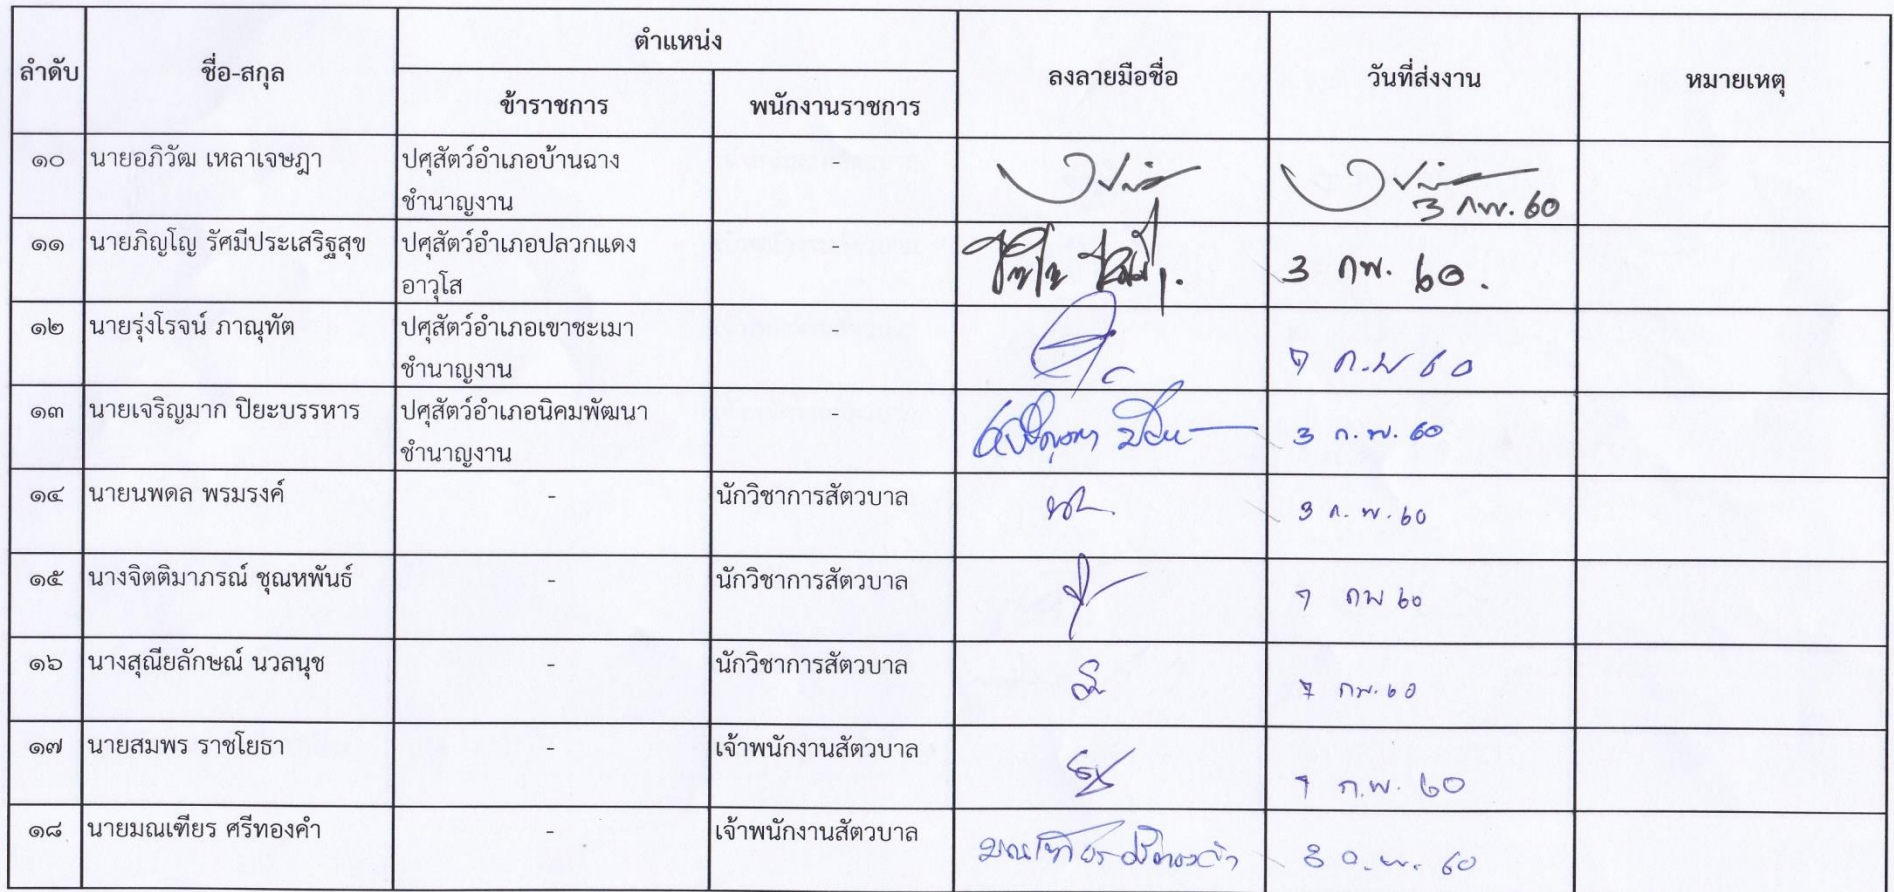 ตำแหน่ง
ลำดับ ชื่อ-สกุล ลงลายมือชื่อ วันที่ส่งงาน หมายเหตุ
ข้าราชการ พนักงานราชการ
๑๐ นายอภิวัฒ เหลาเจษฎา ปศุสัตว์อำเภอบ้านฉาง -
ชำนาญงาน 3 กพ. 60
๑๑ นายภิญโญ รัศมีประเสริฐสุข ปศุสัตว์อำเภอปลวกแดง - 3 กพ. 60.
อาวุโส
๑๒ นายรุ่งโรจน์ ภาณุทัต ปศุสัตว์อำเภอเขาชะเมา - ก.พ 60
ชำนาญงาน
๑๓ นายเจริญมาก ปิยะบรรหาร ปศุสัตว์อำเภอนิคมพัฒนา - 3 ก.พ. 60
ชำนาญงาน
๑๔ นายนพดล พรมรงค์ - นักวิชาการสัตวบาล 3 ก.พ. 60
๑๕ นางจิตติมาภรณ์ ชุณหพันธ์ - นักวิชาการสัตวบาล กพ 60
๑๖ นางสุณียลักษณ์ นวลนุช - นักวิชาการสัตวบาล กพ. 60
๑๗ นายสมพร ราชโยธา - เจ้าพนักงานสัตวบาล ก.พ. 60
๑๘ นายมณเฑียร ศรีทองคำ - เจ้าพนักงานสัตวบาล มณเฑียร ศรีทองคำ ก.พ. 60